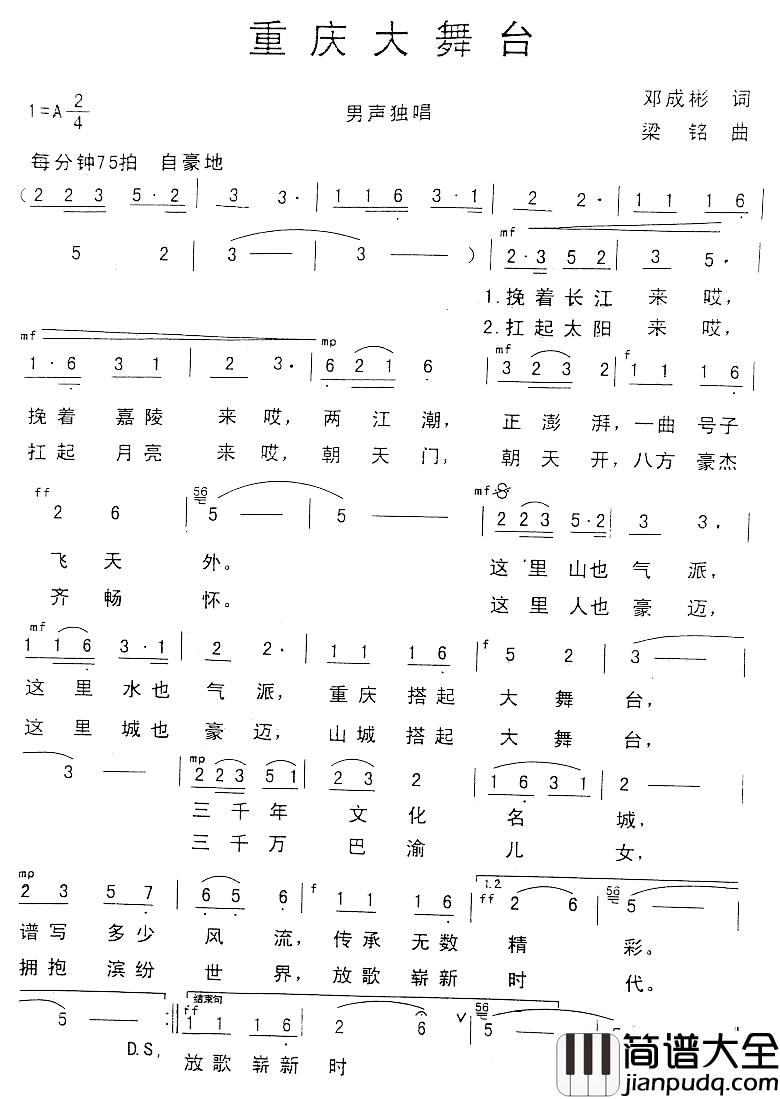 重庆大舞台
1=A 2/4
男声独唱
邓成彬 词
梁 铭 曲
每分钟75拍 自豪地
(2 2 3 5·2 | 3 3· | 1 1 6 3·1 | 2 2· | 1 1 1 6 |
5 2 | 3 — | 3 — ) | mf 2·3 5 2 | 3 5· |
1.挽着长江 来 哎,
2.扛起太阳 来 哎,
mf 1·6 3 1 | 2 3· | mp 6 2 1 6 | mf 3 2 3 2 | f 1 1 1 6 |
挽着 嘉陵 来 哎, 两 江 潮, 正 澎 湃, 一曲 号子
扛起 月亮 来 哎, 朝 天 门, 朝 天 开, 八方 豪杰
ff 2 6 | 56 5 — | 5 — | mf 2 2 3 5·2 | 3 3· |
飞 天 外。 这 里 山也 气 派,
齐 畅 怀。 这 里 人也 豪 迈,
mf 1 1 6 3·1 | 2 2· | 1 1 1 6 | f 5 2 | 3 — |
这 里 水也 气 派, 重庆 搭起 大 舞 台,
这 里 城也 豪 迈, 山城 搭起 大 舞 台,
3 — | mp 2 2 3 5 1 | 2 3 2 | 1 6 3 1 | 2 — |
三千年 文 化 名 城,
三千万 巴 渝 儿 女,
mp 2 3 5 7 | 6 5 6 | f 1 1 1 6 | 1.2. ff 2 6 | 56 5 — |
谱写 多少 风 流, 传承 无数 精 彩。
拥抱 缤纷 世 界, 放歌 崭新 时 代。
5 — :‖ 结束句 ff 1 1 1 6 | 2 6 ∨ | 56 5 —
D.S, 放歌 崭新 时
简谱大全
jianpudq.com